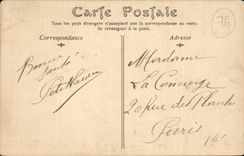 76
Carte Postale
Tous les pays étrangers n'acceptent pas la correspondance au recto.
Se renseigner à la poste.
Correspondance
Adresse
Bonne
santé
Madame
La Concierge
20 Rue des Plantes
Paris
14e